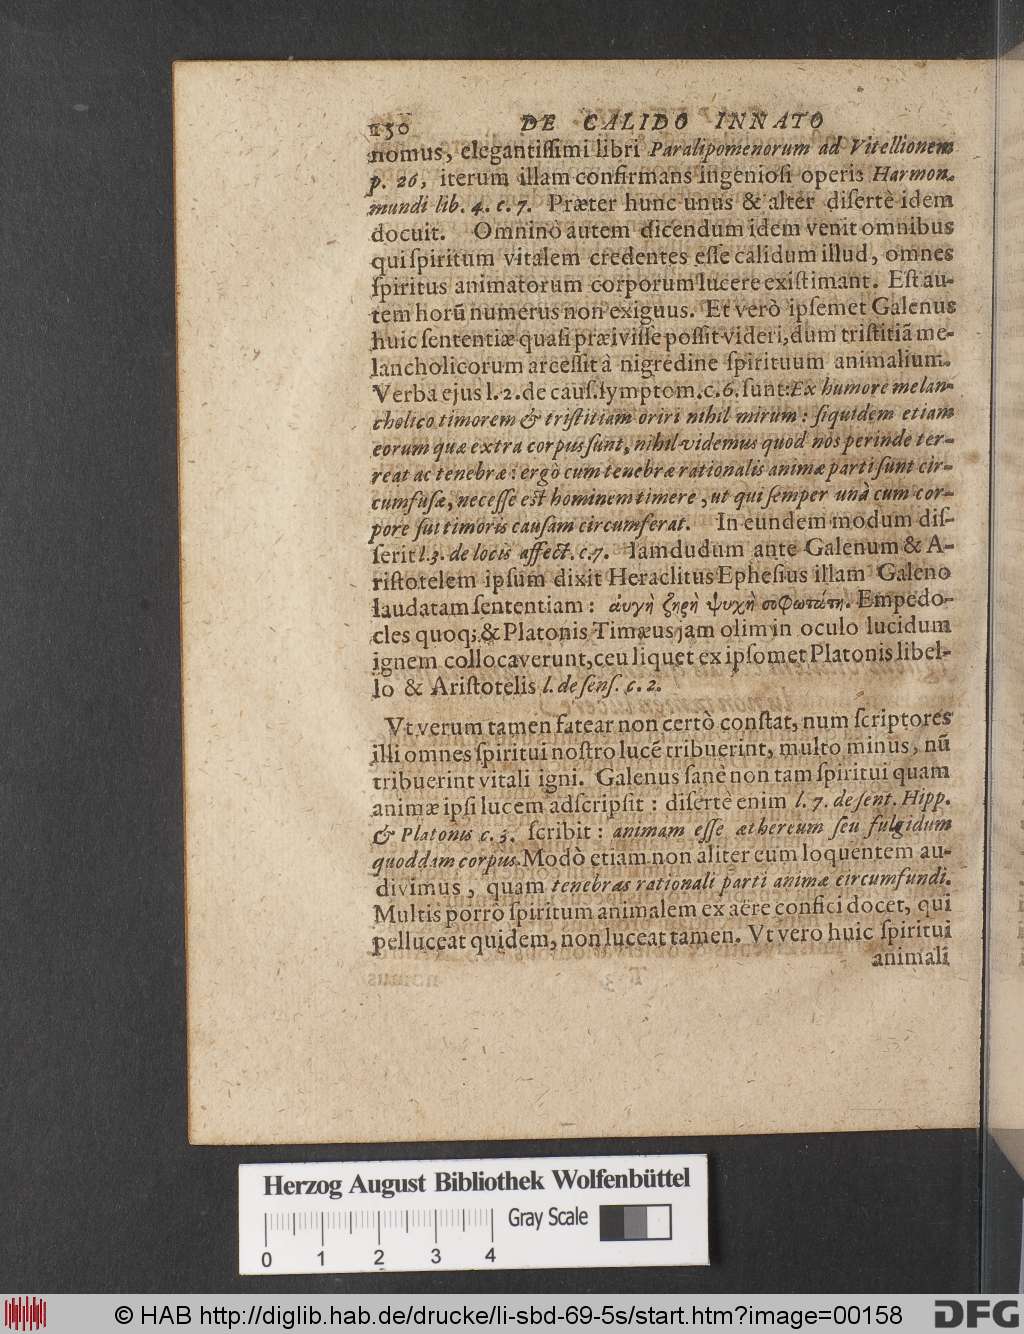 150 DE CALIDO INNATO
nomus, elegantiſſimi libri Paralipomenorum ad Vitellionem
p. 26, iterum illam confirmans ingenioſi operis Harmon.
mundi lib. 4. c. 7. Præter hunc unus & alter diſertè idem
docuit. Omninò autem dicendum idem venit omnibus
qui ſpiritum vitalem credentes eſſe calidum illud, omnes
ſpiritus animatorum corporum lucere exiſtimant. Eſt au-
tem horũ numerus non exiguus. Et verò ipſemet Galenus
huic ſententiæ quaſi præiviſſe poſſit videri, dum triſtitiã me-
lancholicorum arceſſit à nigredine ſpirituum animalium.
Verba ejus l. 2. de cauſ. ſymptom. c. 6. ſunt: Ex humore melan-
cholico timorem & triſtitiam oriri nihil mirum: ſiquidem etiam
eorum quæ extra corpus ſunt, nihil videmus quod nos perinde ter-
reat ac tenebræ: ergò cum tenebræ rationalis animæ parti ſunt cir-
cumfuſæ, neceſſe est hominem timere, ut qui ſemper unà cum cor-
pore ſui timoris cauſam circumferat. In eundem modum diſ-
ſerit l. 3. de locis affect. c. 7. Iamdudum ante Galenum & A-
riſtotelem ipſum dixit Heraclitus Epheſius illam Galeno
laudatam ſententiam: ἀυγὴ ξηρὴ ψυχὴ σοφωτάτη. Empedo-
cles quoq; & Platonis Timæus jam olim in oculo lucidum
ignem collocaverunt, ceu liquet ex ipſomet Platonis libel-
lo & Ariſtotelis l. de ſenſ. c. 2.
Vt verum tamen fatear non certò conſtat, num ſcriptores
illi omnes ſpiritui noſtro lucē tribuerint, multo minus, nũ
tribuerint vitali igni. Galenus ſanè non tam ſpiritui quam
animæ ipſi lucem adſcripſit: diſertè enim l. 7. de ſent. Hipp.
& Platonis c. 3. ſcribit: animam eſſe æthereum ſeu fulgidum
quoddam corpus. Modò etiam non aliter eum loquentem au-
divimus, quam tenebras rationali parti animæ circumfundi.
Multis porrò ſpiritum animalem ex aëre confici docet, qui
pelluceat quidem, non luceat tamen. Vt vero huic ſpiritui
animali
Herzog August Bibliothek Wolfenbüttel
Gray Scale
0 1 2 3 4
© HAB http://diglib.hab.de/drucke/li-sbd-69-5s/start.htm?image=00158
DFG